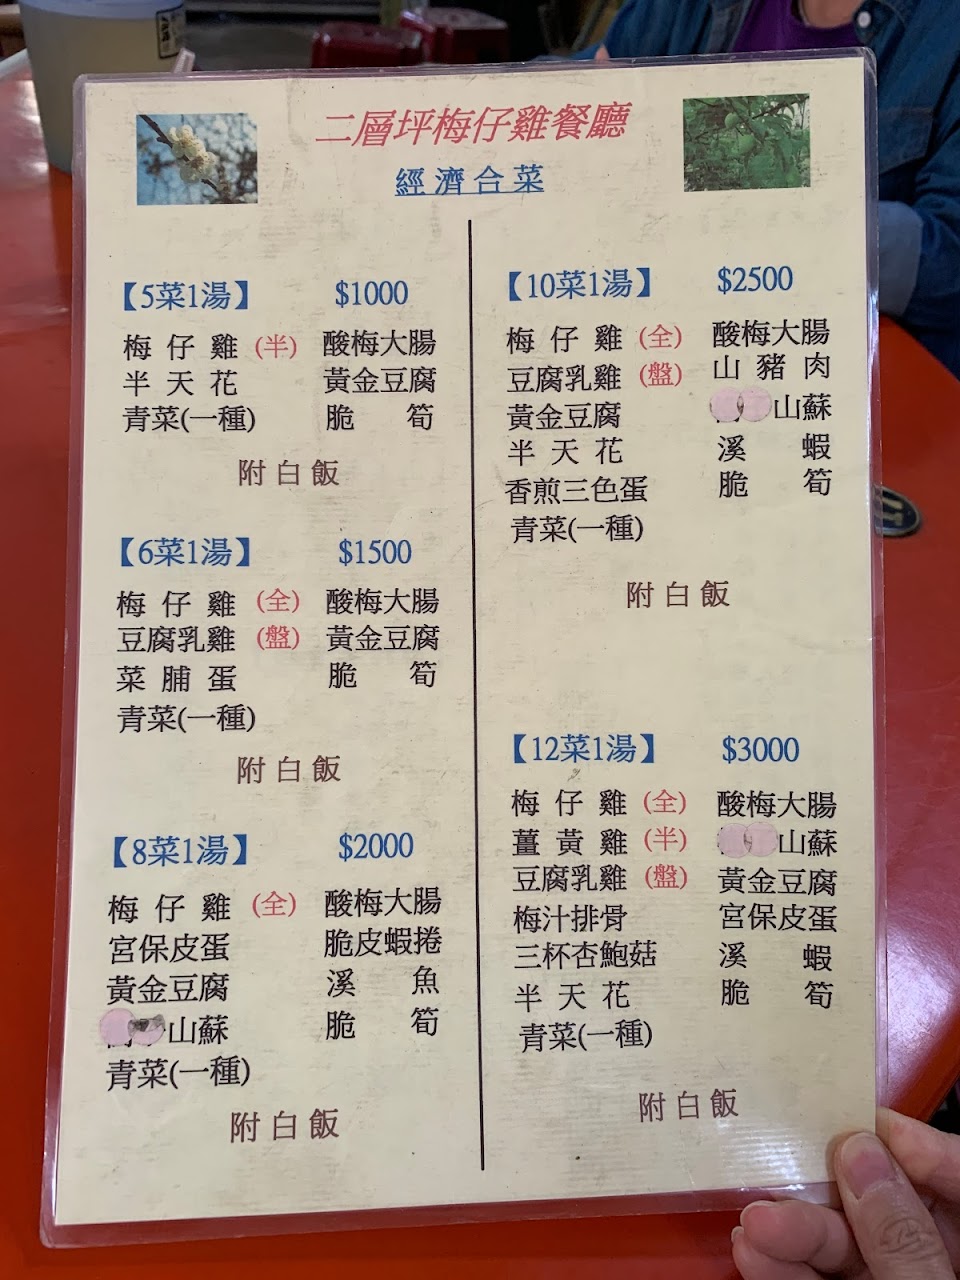 二層坪梅仔雞餐廳
經濟合菜
【5菜1湯】 $1000
梅仔雞(半) 酸梅大腸
半天花 黃金豆腐
青菜(一種) 脆筍
附白飯
【6菜1湯】 $1500
梅仔雞(全) 酸梅大腸
豆腐乳雞(盤) 黃金豆腐
菜脯蛋 脆筍
青菜(一種)
附白飯
【8菜1湯】 $2000
梅仔雞(全) 酸梅大腸
宮保皮蛋 脆皮蝦捲
黃金豆腐 溪魚
山蘇 脆筍
青菜(一種)
附白飯
【10菜1湯】 $2500
梅仔雞(全) 酸梅大腸
豆腐乳雞(盤) 山豬肉
黃金豆腐 山蘇
半天花 溪蝦
香煎三色蛋 脆筍
青菜(一種)
附白飯
【12菜1湯】 $3000
梅仔雞(全) 酸梅大腸
薑黃雞(半) 山蘇
豆腐乳雞(盤) 黃金豆腐
梅汁排骨 宮保皮蛋
三杯杏鮑菇 溪蝦
半天花 脆筍
青菜(一種)
附白飯